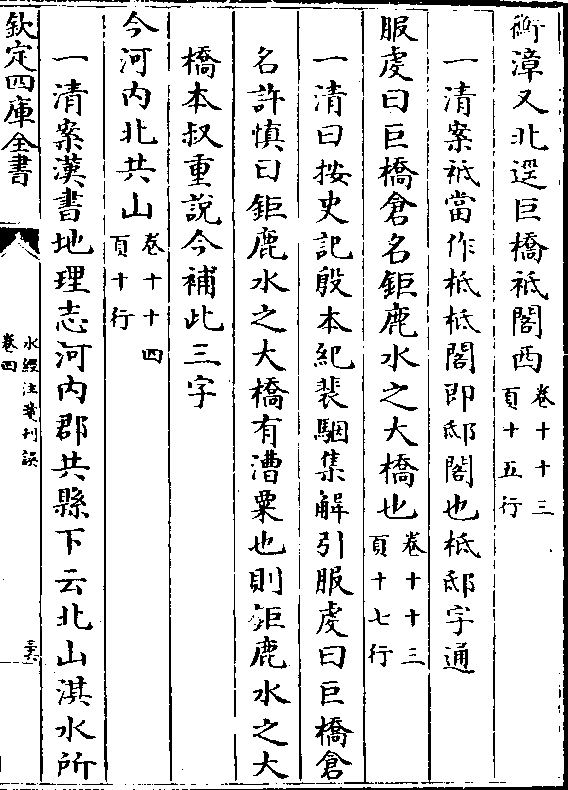 衡漳又北逕巨橋袛閣西卷十十三頁十五行
一清案袛當作柢柢閣即邸閣也柢邸字通
服虔曰巨橋倉名鉅鹿水之大橋也卷十十三頁十七行
一清曰按史記殷本紀裴駰集解引服虔曰巨橋倉
名許慎曰鉅鹿水之大橋有漕粟也則鉅鹿水之大
橋本叔重說今補此三字
今河内北共山卷十十四頁十行
一清案漢書地理志河内郡共縣下云北山淇水所
欽定四庫全書
水經注箋刊誤
卷四
三六